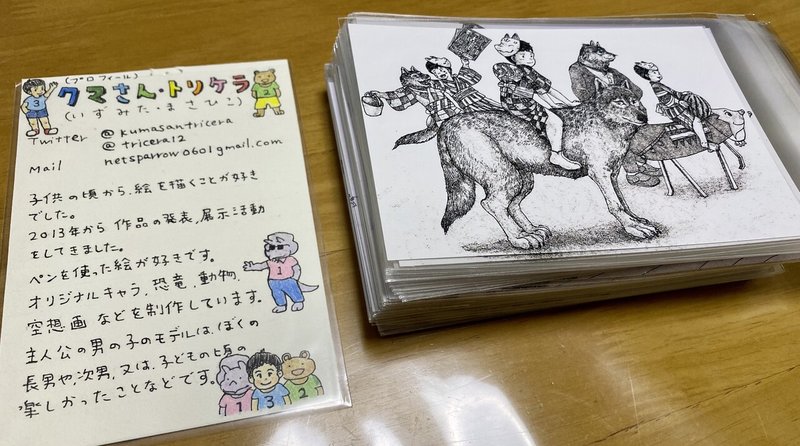 (プロフィール)
クマさん・トリケラ
(いずみた・まさひこ)
Twitter @kumasantricera
@tricera12
Mail netsparrow0601gmail.com
子供の頃から、絵を描くことが好き
でした。
2013年から作品の発表、展示活動
をしてきました。
ペンを使った絵が好きです。
オリジナルキャラ、恐竜、動物、
空想画などを制作しています。
主人公の男の子のモデルは、ぼくの
長男や、次男、又は、子どもの頃の
楽しかったことなどです。
3
2
1
1 3 2